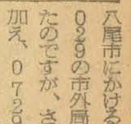 八尾市にかける
029の市外局
たのですが、さ
加え、0729